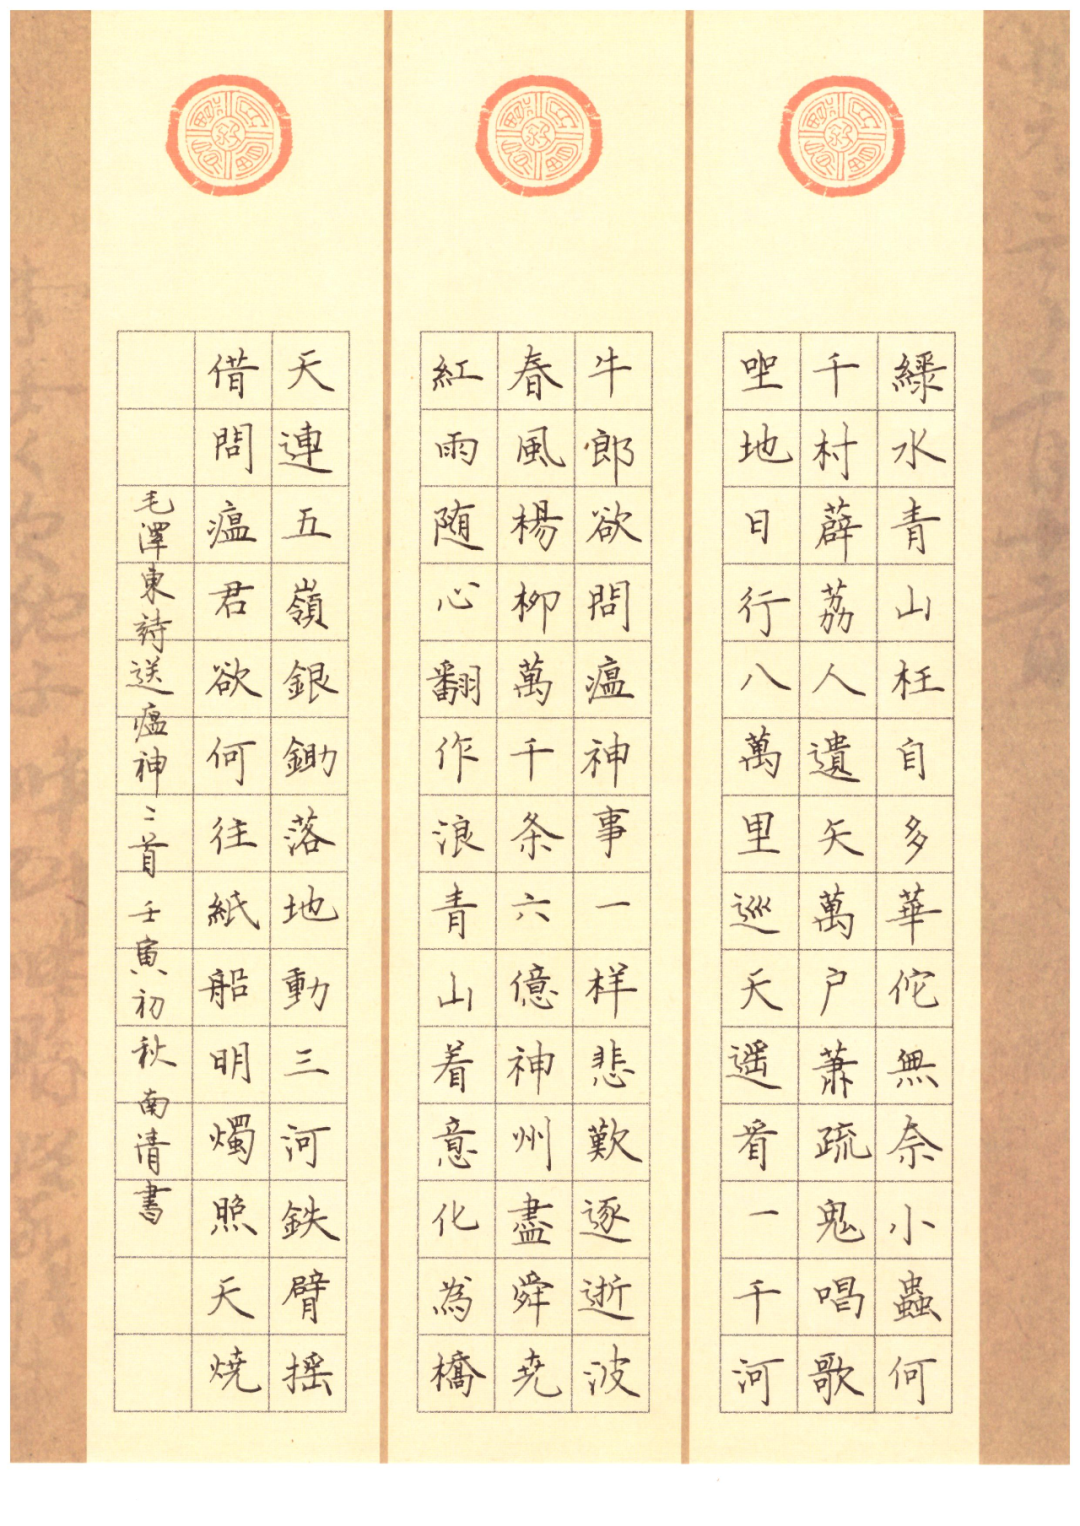 綠水青山枉自多華佗無奈小蟲何
千村薜荔人遺矢萬户蕭疏鬼唱歌
坐地日行八萬里巡天遥看一千河
牛郎欲問瘟神事一样悲歎逐逝波
春風楊柳萬千条六億神州盡舜尭
紅雨随心翻作浪青山着意化為橋
天連五嶺銀鋤落地動三河鉄臂摇
借問瘟君欲何往紙船明燭照天焼
毛澤東詩送瘟神二首 壬寅初秋 南清書